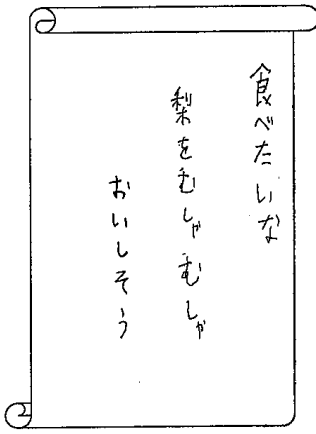 食べたいな
梨をむしゃむしゃ
おいしそう